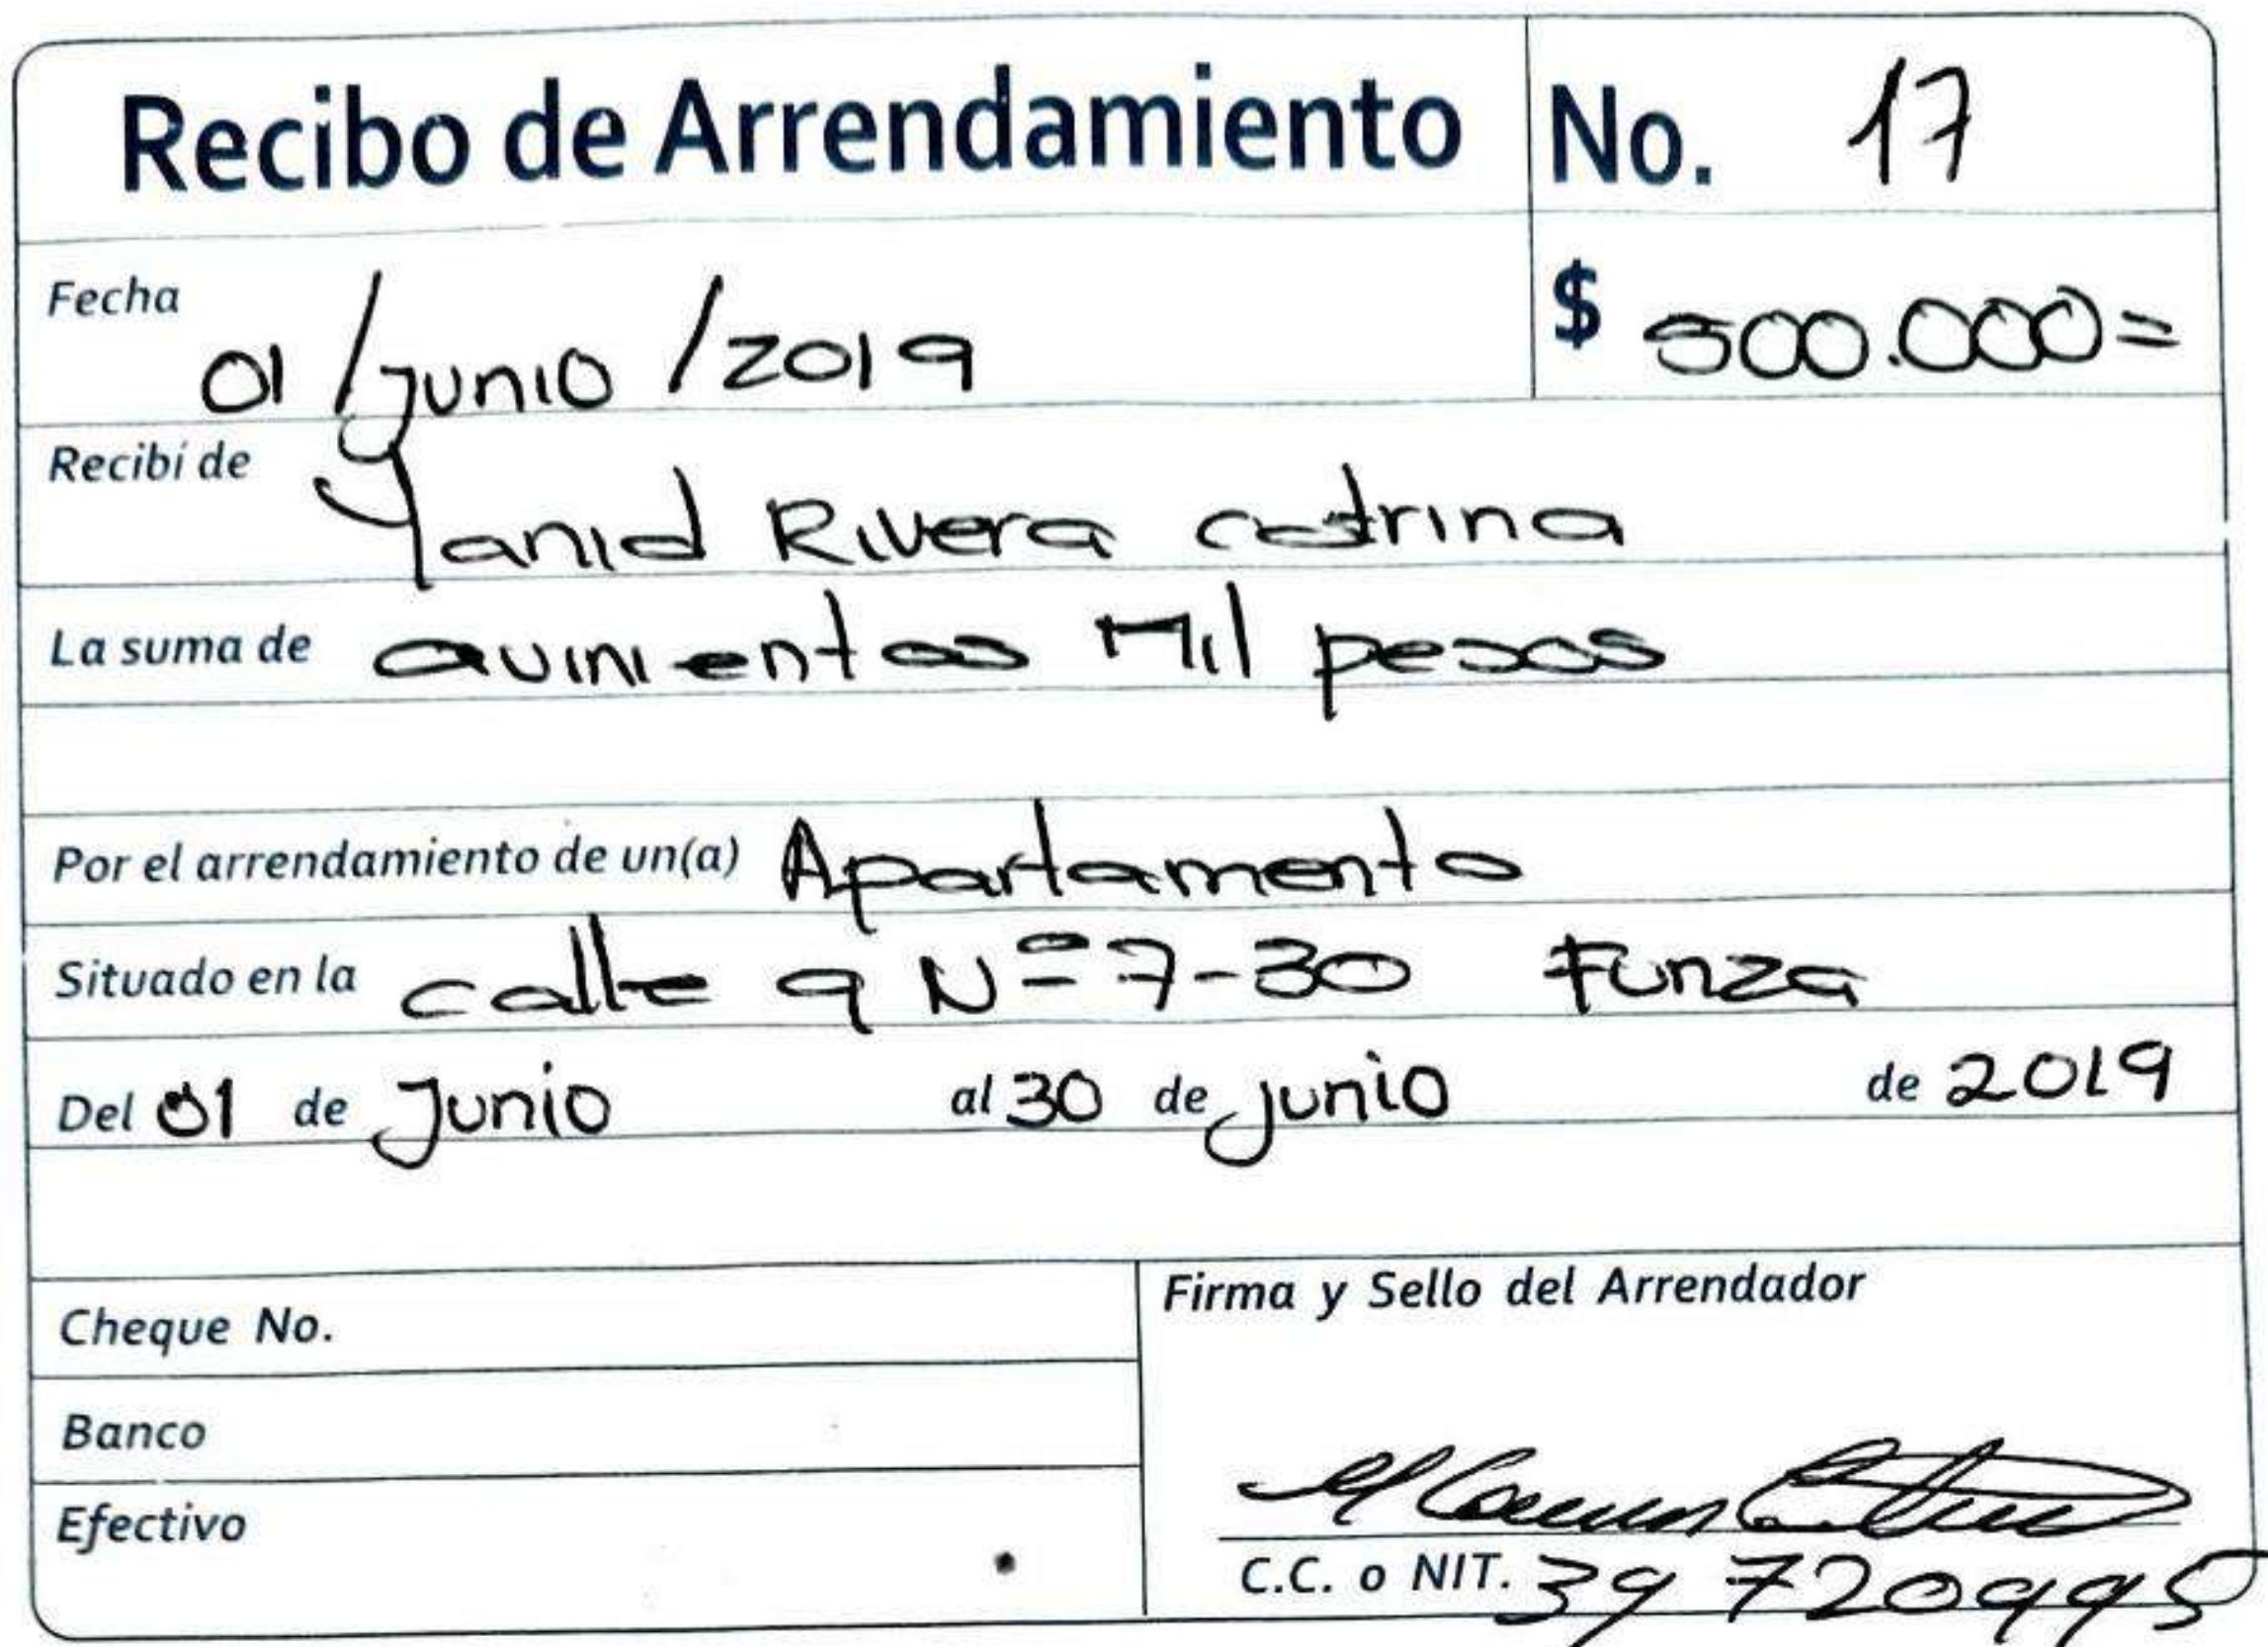 Recibo de Arrendamiento No. 17
Fecha 01/junio/2019 $ 500.000=
Recibí de Yanid Rivera cotrina
La suma de quinientos Mil pesos
Por el arrendamiento de un(a) Apartamento
Situado en la calle 9 Nº 7-30 Funza
Del 01 de Junio al 30 de junio de 2019
Firma y Sello del Arrendador
Cheque No.
Banco
Efectivo
C.C. o NIT. 39720995